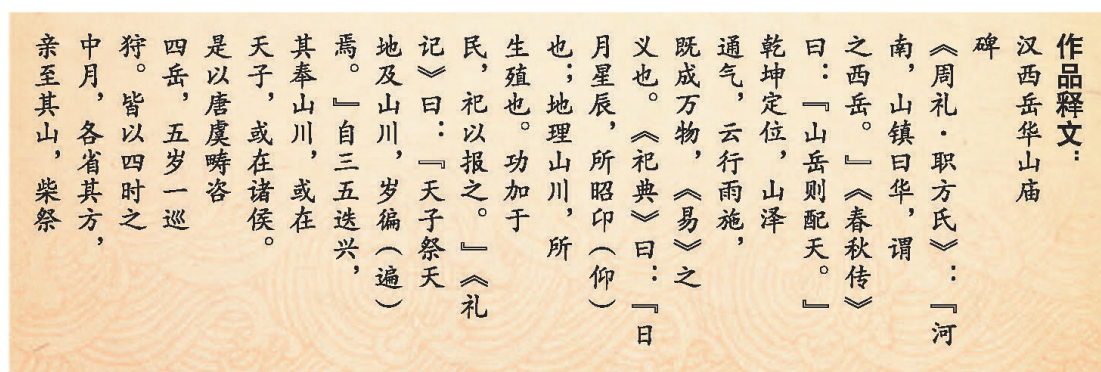 作品释文：
汉西岳华山庙
碑
《周礼·职方氏》：『河
南，山镇曰华，谓
之西岳。』《春秋传》
曰：『山岳则配天。』
乾坤定位，山泽
通气，云行雨施，
既成万物，《易》之
义也。《祀典》曰：『日
月星辰，所昭卬（仰）
也；地理山川，所
生殖也。功加于
民，祀以报之。』《礼
记》曰：『天子祭天
地及山川，岁徧（遍）
焉。』自三五迭兴，
其奉山川，或在
天子，或在诸侯。
是以唐虞畴咨
四岳，五岁一巡
狩。皆以四时之
中月，各省其方，
亲至其山，柴祭